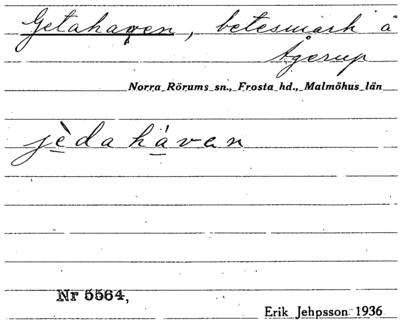 Getahagen, betesmark å
Ågerup
Norra Rörums sn., Frosta hd., Malmöhus län
jèdahávan
Nr 5564,
Erik Jehpsson 1936